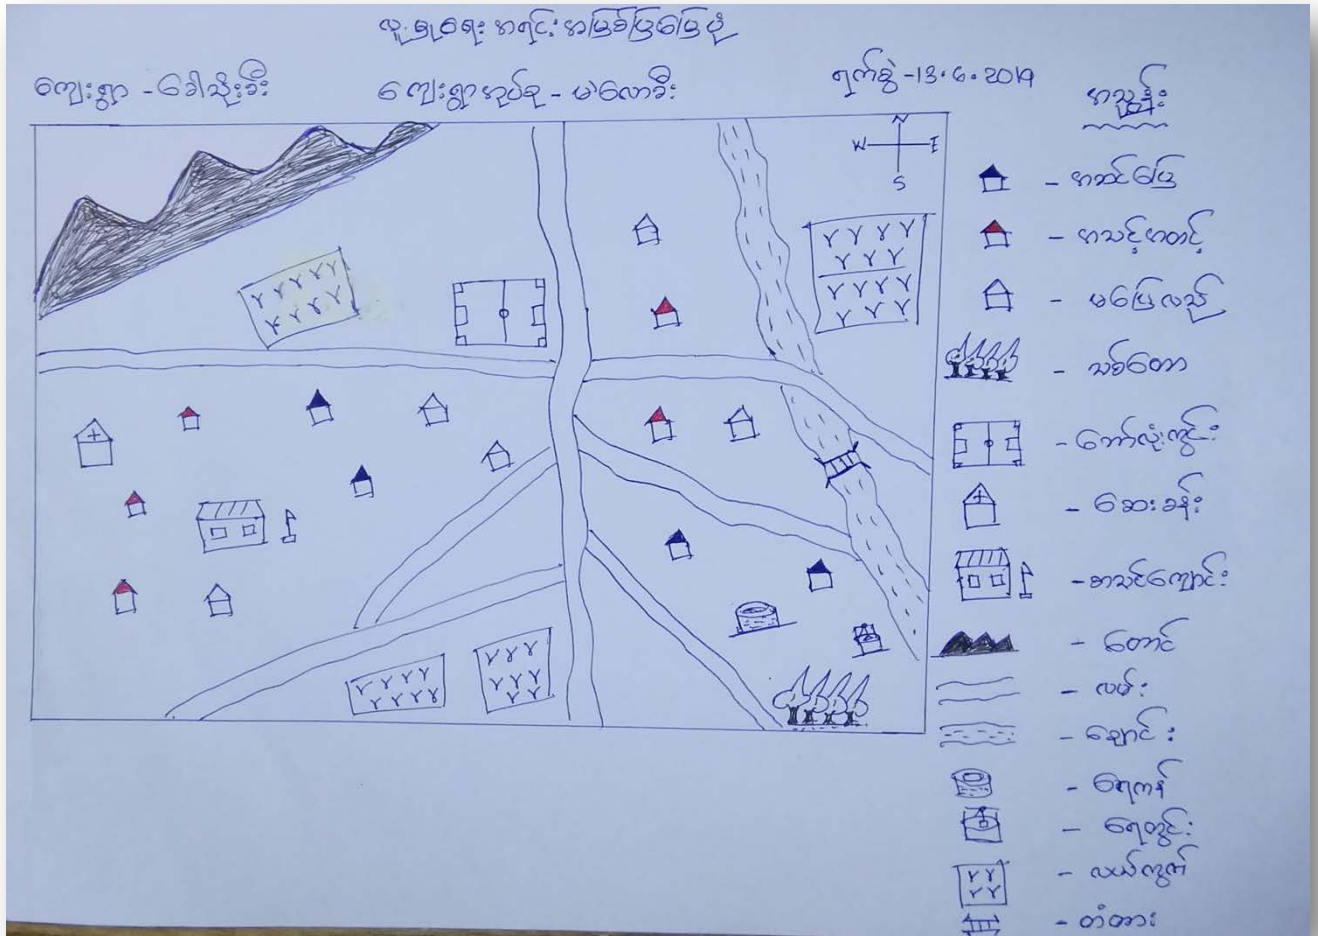 လူမှုရေး အရင်းအမြစ်ပြမြေပုံ
ကျေးရွာ - ခေါသိုးခီး
ကျေးရွာအုပ်စု - မဲလောခီး
ရက်စွဲ - 13.6.2019
အညွှန်း
N
W
E
S
- အဆင်ပြေ
- အသင့်အတင့်
- မပြေလည်
- သစ်တော
- ဘော်လုံးကွင်း
- ဆေးခန်း
- စာသင်ကျောင်း
- တောင်
- လမ်း
- ချောင်း
- ရေကန်
- ရေတွင်း
- လယ်ကွက်
- တံတား